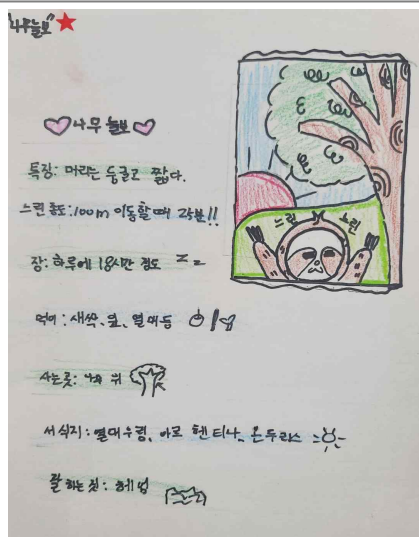 "나무늘보"
나무 늘보
특징: 머리는 둥글고 짧다.
느린 정도: 100m 이동할 때 25분!!
잠: 하루에 18시간 정도 z z
먹이: 새싹, 잎, 열매 등
사는 곳: 나무 위
서식지: 열대우림, 아르헨티나, 온두라스
잘 하는 것: 헤엄
느린 느린